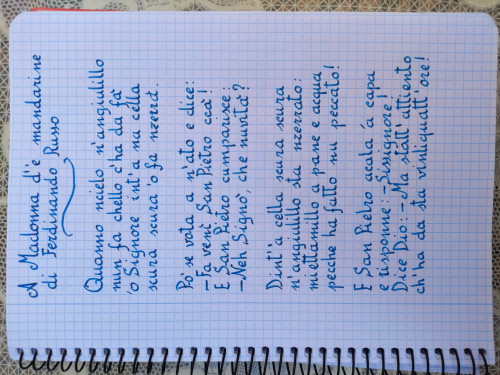 A Madonna d'e mandarine
di Ferdinando Russo
Quanno ncielo n'angiulillo
nun fa chello c'ha da fà
'o Signore int'a na cella
scura scura 'o fa nzerrà.
Pò se vota a n'ato e dice:
-Fa venì San Pietro ccà!
E San Pietro cumparisce:
-Neh Signò, che nuvità?
Dint'a cella scura scura
n'angiulillo sta nzerrato:
miettamillo a pane e acqua
pecche ha fatto nu peccato!
E San Pietro acalà á capa
e risponne:-Sissignore!
Dice Dio:-Ma statt'attiento
ch'ha da sta vintiquatt'ore!